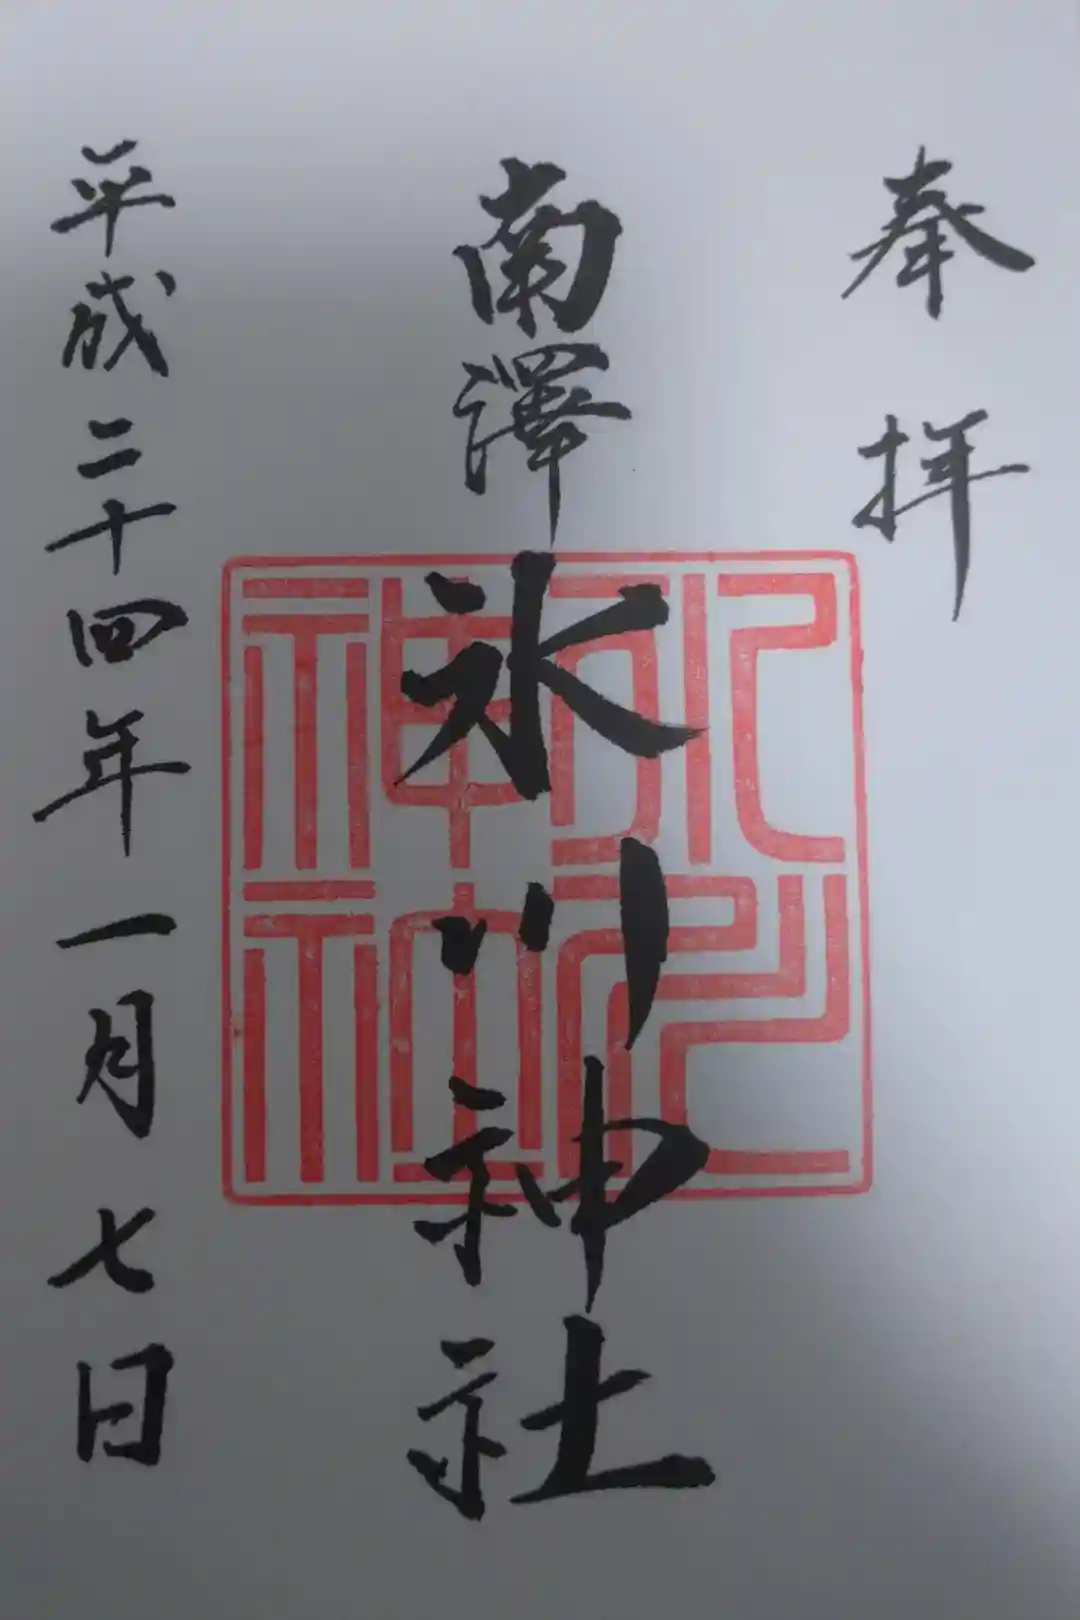 奉拝
南澤氷川神社
平成二十四年一月七日